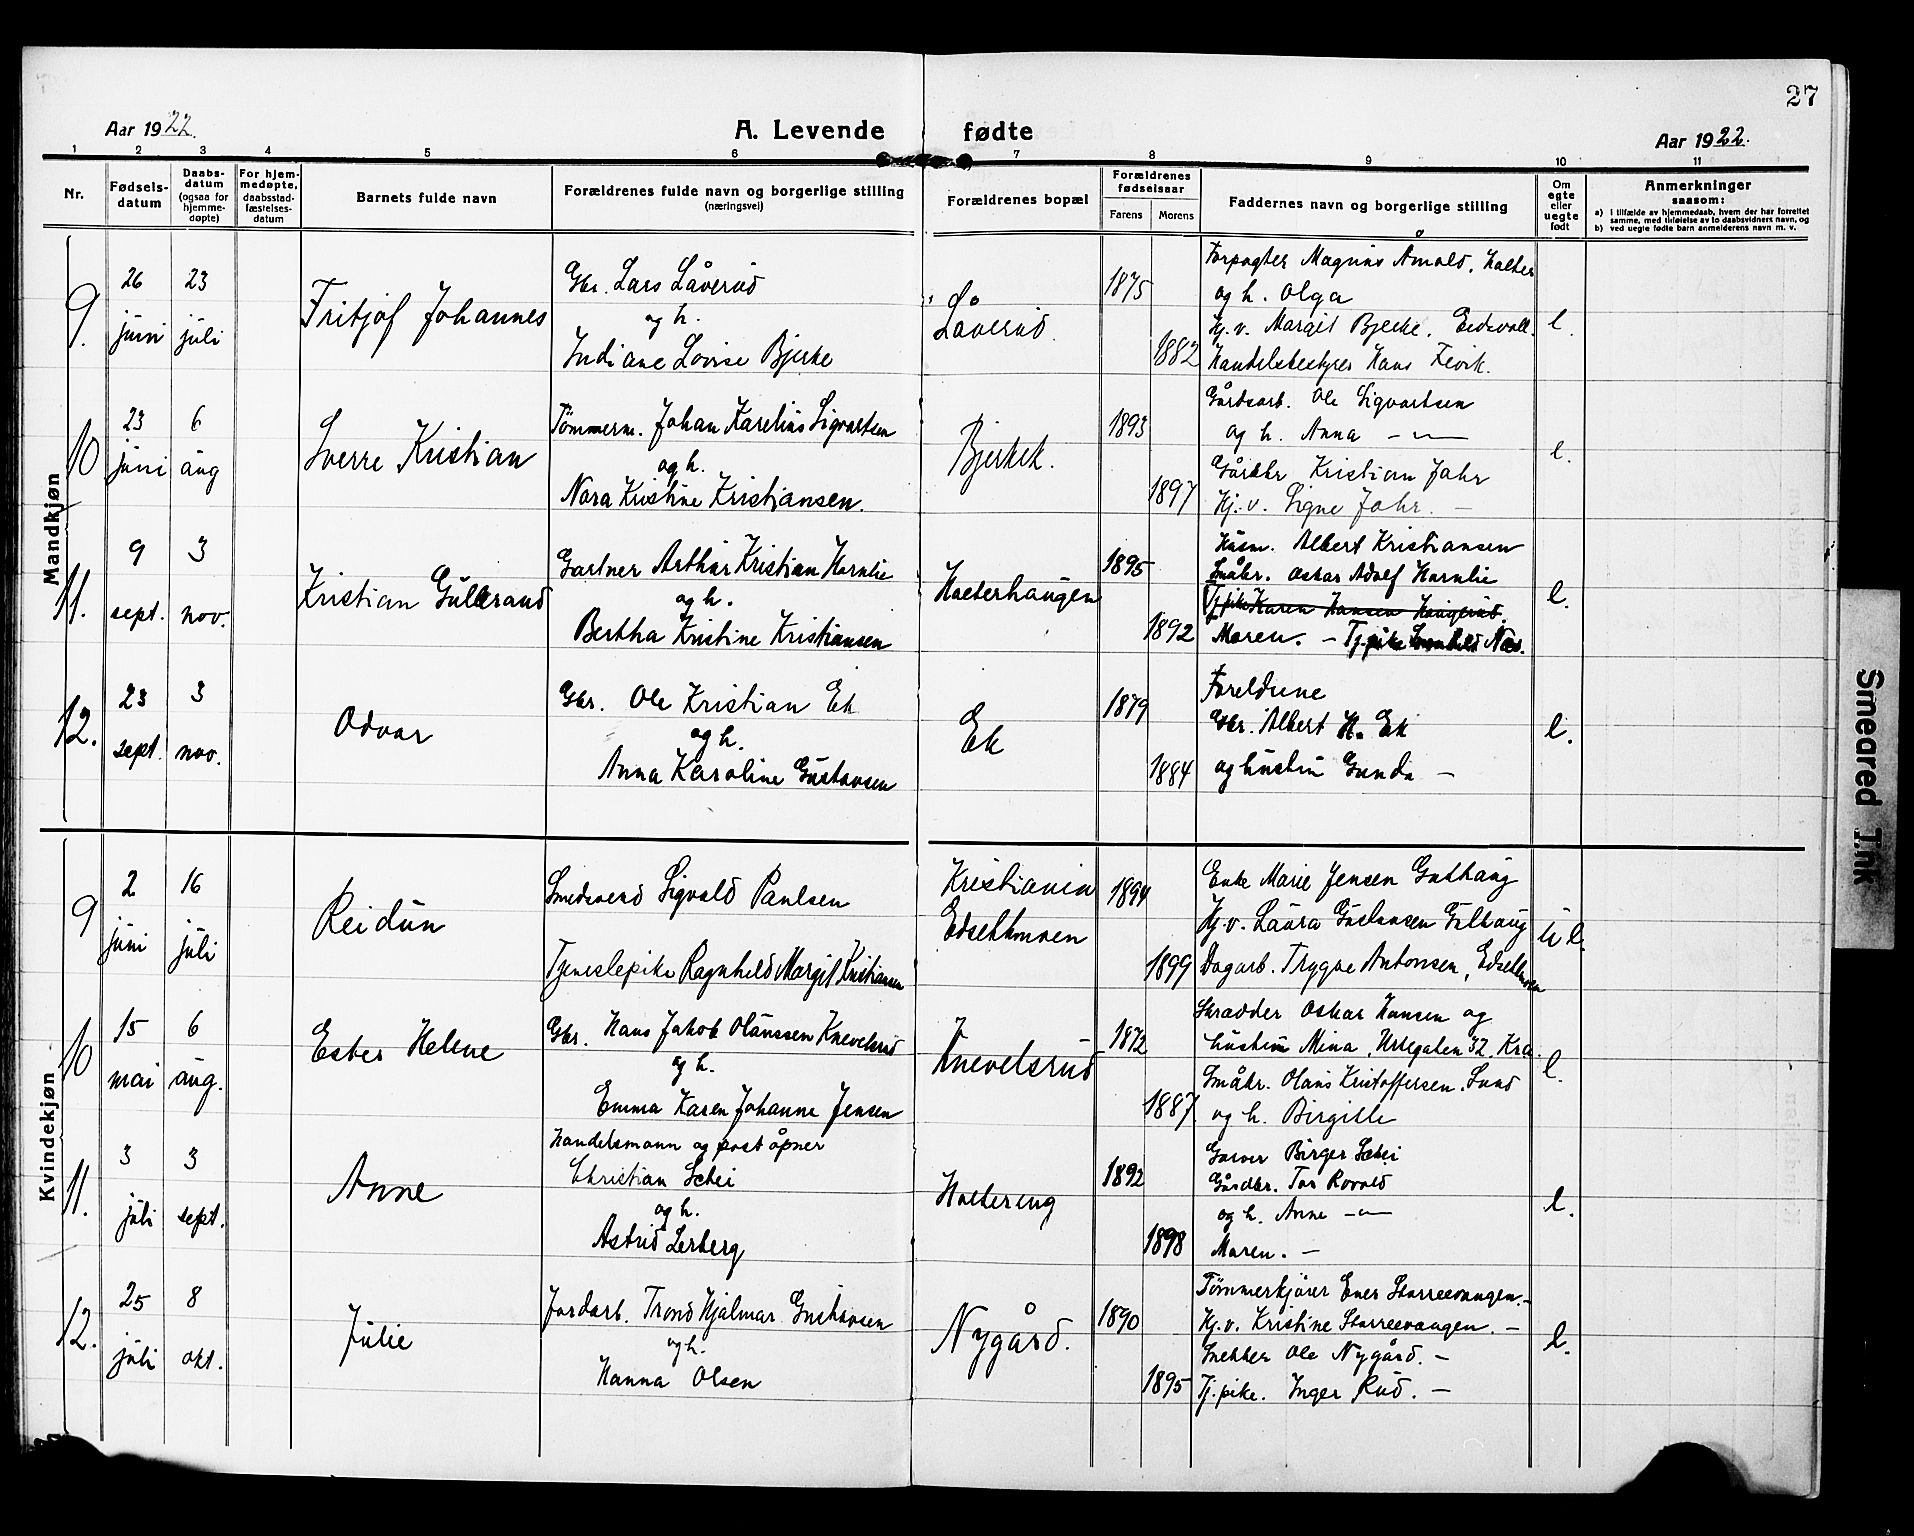 27
Aar 1922.
A. Levende fødte
Aar 1922.
1 2 3 4 5 6 7 8 9 10 11
Nr.
Fødsels-
datum
Daabs-
datum
(ogsaa for
hjemme-
døpte)
For hjem-
medøpte,
daabsstad-
fæstelses-
datum
Barnets fulde navn
Forældrenes fulde navn og borgerlige stilling
(næringsvei)
Forældrenes bopæl
Forældrenes
fødselsaar
Farens Morens
Faddernes navn og borgerlige stilling
Om
egte
eller
uegte
født
Anmerkninger
saasom:
a) i tilfælde av hjemmedaab, hvem der har forrettet
samme, med tilføielse av to daabsvidners navn, og
b) ved uegte fødte barn anmelderens navn m. v.
Mandkjøn
9.
26
juni
23
juli
Fritjof Johannes
Gbr. Lars Låverud
og h.
Indiane Lovise Bjerke
Låverud.
1875
1882
Forpagter Magnus Åmold, Holter
og h. Olga
Hj.v. Margit Bjerke, Eidsvoll.
Handelsbestyrer Hans Fevik.
e.
10
23
juni
6
aug
Sverre Kristian
Tømmerm. Johan Karelius Sigvartsen
og h.
Nora Kristine Kristiansen.
Bjerkek.
1893
1897
Gårdsarb. Ole Sigvartsen
og h. Anna — " —
Gårdbr Kristian Jahr
Hj.v. Signe Jahr. —
e.
11.
9
sept.
3
nov.
Kristian Gulbrand
Gartner Arthur Kristian Hornlie
og h.
Bertha Kristine Kristiansen
Holterhaugen
1895
1892
Husm. Albert Kristiansen
Småbr. Oskar Adolf Hornlie
Tj.pike Karen Hansen Haugerud.
Moren. — Tj.pike Gunhild Næs.
e.
12.
23
sept.
3
nov.
Odvar
Gbr. Ole Kristian Ek
og h.
Anna Karoline Gustavsen
Ek
1879
1884
Foreldrene
Gbr. Albert H. Ek
og hustru Gunda —
e.
Kvindekjøn
9
2
juni
16
juli
Reidun
Smedsvend Sigvald Paulsen
Tjenestepike Ragnhild Margit Kristiansen
Kristiania
Edsethmoen
1894
1899
Enke Marie Jensen Gulhaug
Hj.v. Laura Gustavsen Gulhaug
Dagarb. Trygve Antonsen, Edsethmoen
u e.
10
15
mai
6
aug.
Ester Helene
Gbr. Hans Jakob Olaussen Knevelsrud
og h.
Emma Karen Johanne Jensen
Knevelsrud
1872
1887
Skrædder Oskar Hansen og
hustru Mina, Urtegaten 32, Kra.
Småbr. Olaus Kristoffersen, Lund
og h. Birgitte
e.
11.
3
juli
3
sept.
Anne
Handelsmann og poståpner
Christian Schei
og h.
Astrid Lerberg
Holtereng
1892
1898
Garver Birger Schei
Gårdbr. Tor Rovold
og h. Anne — " —
Moren. —
e.
12.
25
juli
8
okt.
Julie
Jordarb. Trond Hjalmar Gustavsen
og h.
Hanna Olsen
Nygård.
1890
1895
Tømmerkjører Ener Starreevangen. —
Hj.v. Kristine Starreevangen. —
Snekker Ole Nygård. —
Tj.pike. Inger Rud. —
e.
Smeared Ink